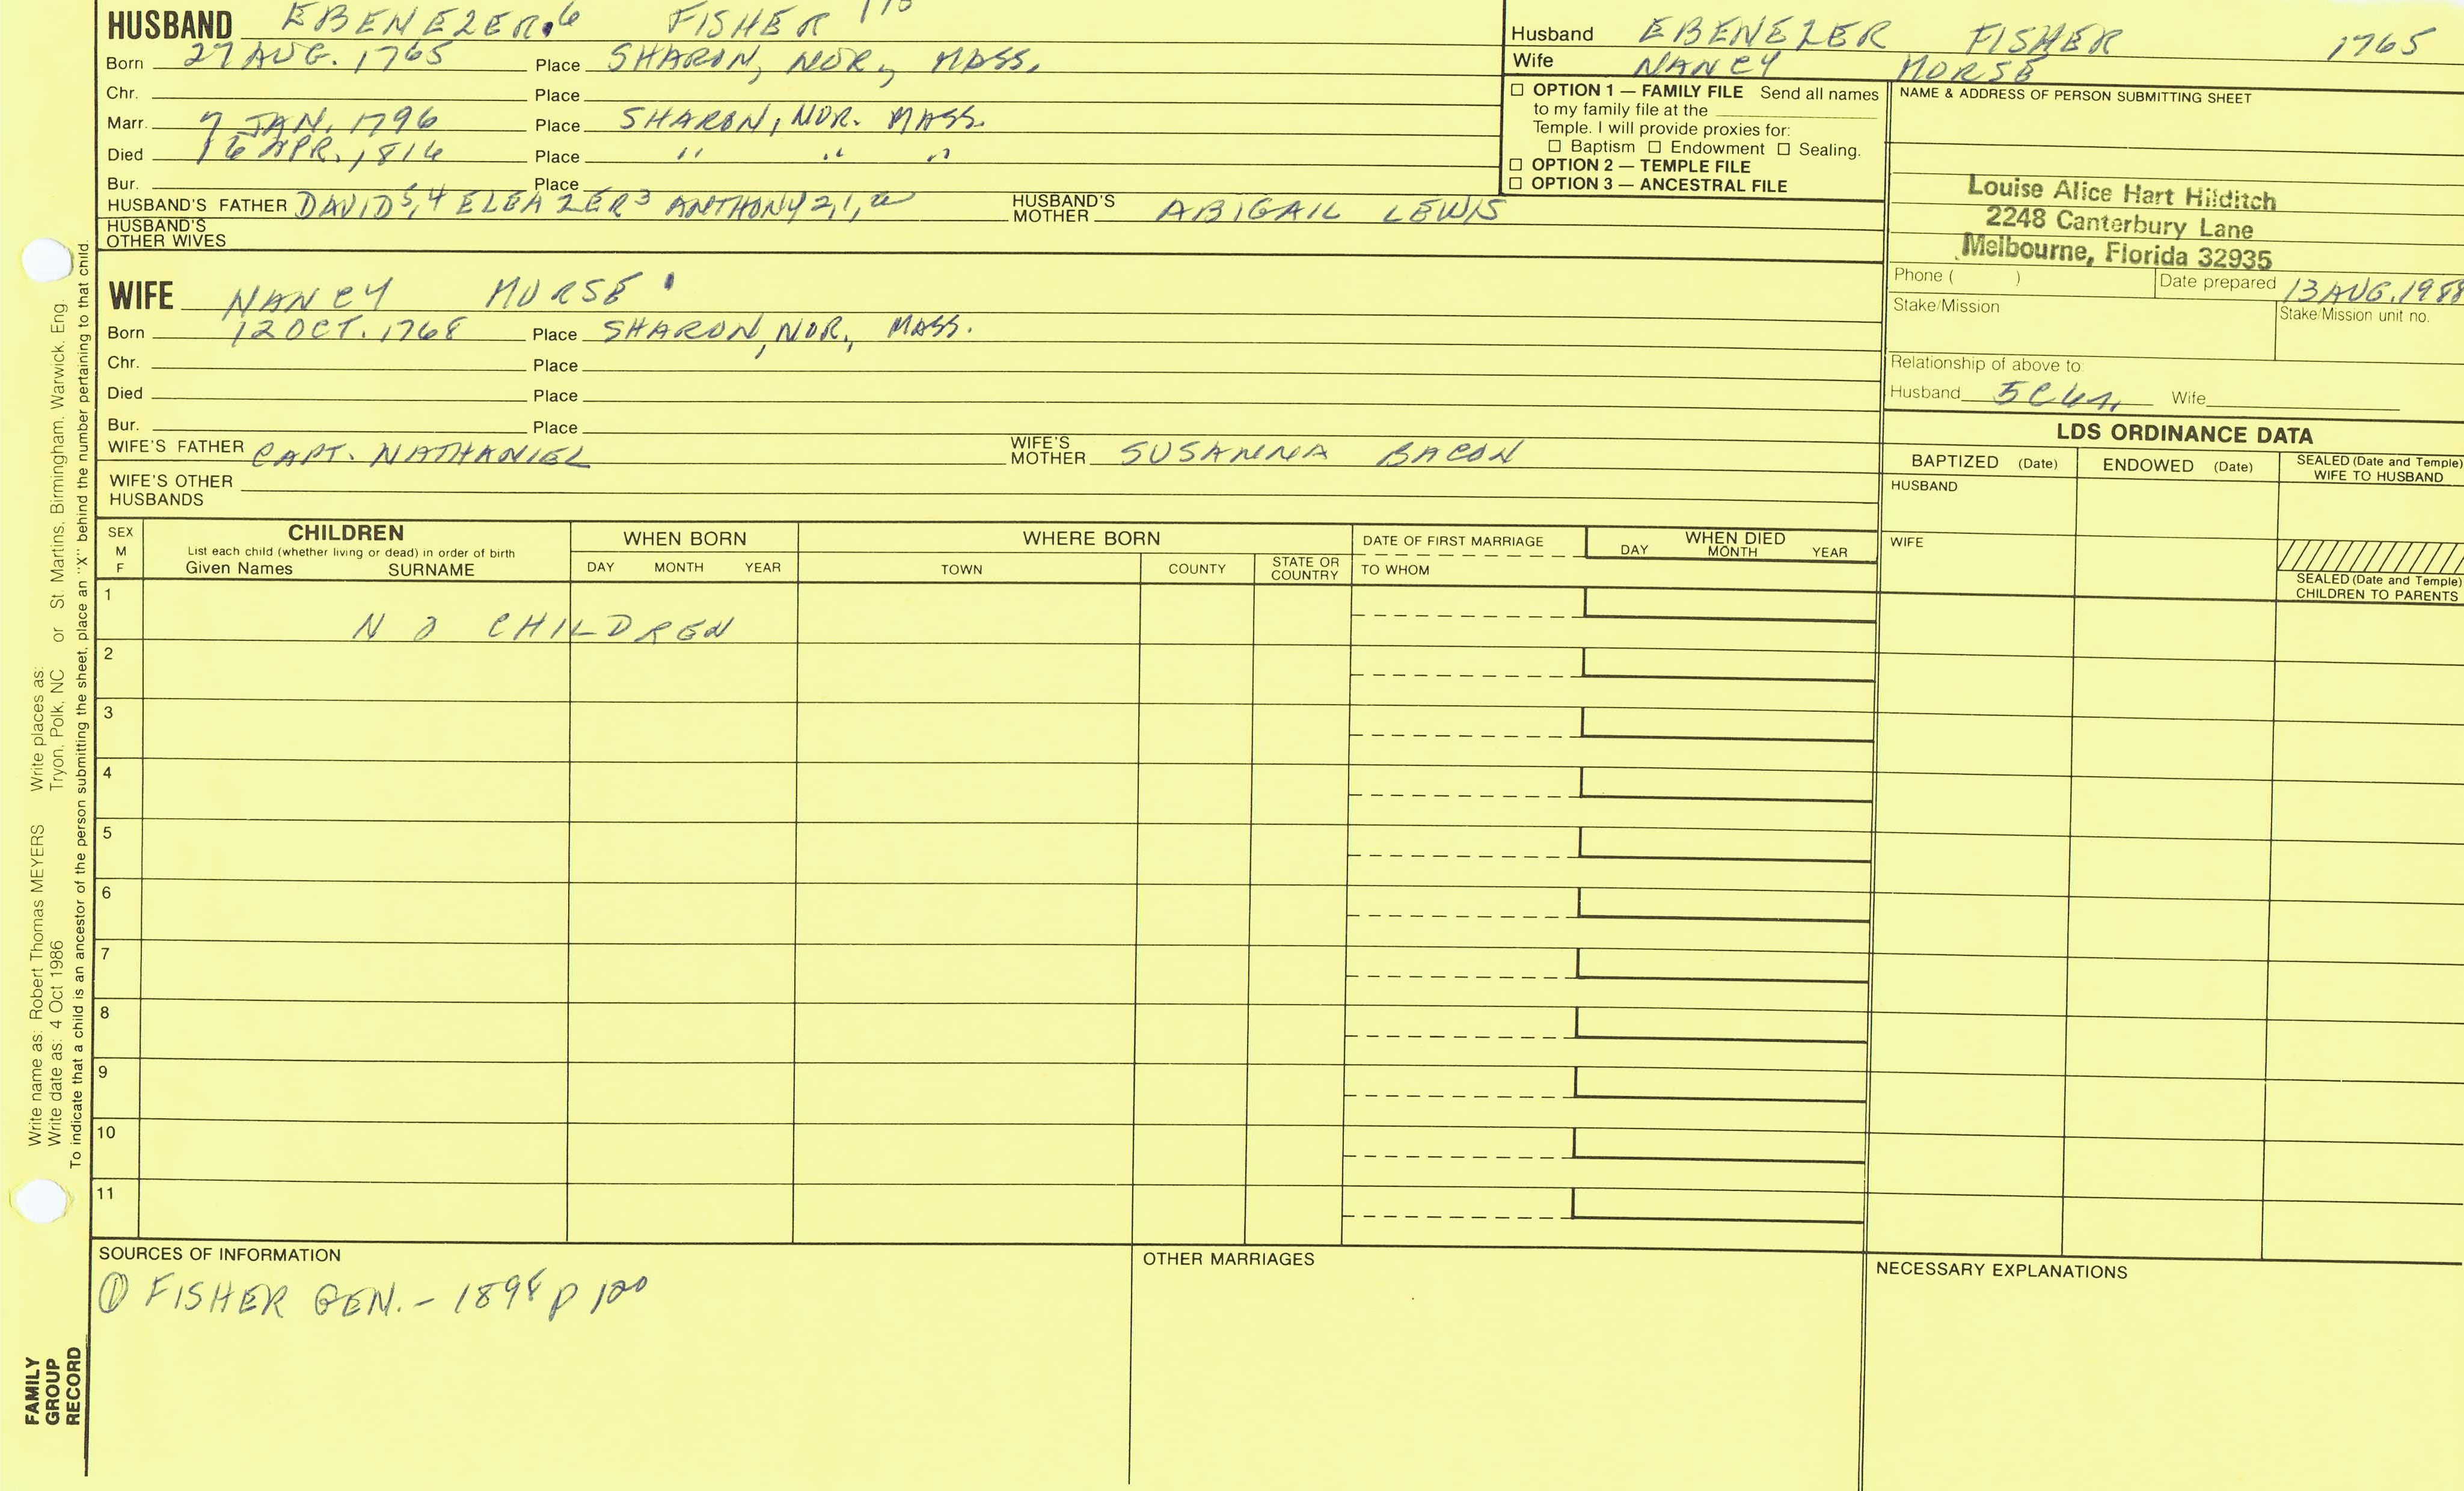 HUSBAND EBENEZER.6 FISHER
Born 27 AUG. 1765 Place SHARON, NOR., MASS.
Chr. Place
Marr. 7 JAN. 1796 Place SHARON, NOR. MASS.
Died 16 APR., 1816 Place " " "
Bur. Place
HUSBAND'S FATHER DAVID5,4 ELEAZER3 ANTHONY2,1, HUSBAND'S MOTHER ABIGAIL LEWIS
HUSBAND'S OTHER WIVES
Husband EBENEZER FISHER 1765
Wife NANCY MORSE
☐ OPTION 1 — FAMILY FILE Send all names
to my family file at the
Temple. I will provide proxies for:
☐ Baptism ☐ Endowment ☐ Sealing.
☐ OPTION 2 — TEMPLE FILE
☐ OPTION 3 — ANCESTRAL FILE
NAME & ADDRESS OF PERSON SUBMITTING SHEET
Louise Alice Hart Hilditch
2248 Canterbury Lane
Melbourne, Florida 32935
Phone ( ) Date prepared 13 AUG. 1988
Stake/Mission Stake/Mission unit no.
Relationship of above to:
Husband Wife
WIFE NANCY MORSE
Born 12 OCT. 1768 Place SHARON, NOR., MASS.
Chr. Place
Died Place
Bur. Place
WIFE'S FATHER CAPT. NATHANIEL WIFE'S MOTHER SUSANNA BACON
WIFE'S OTHER HUSBANDS
LDS ORDINANCE DATA
BAPTIZED (Date) ENDOWED (Date) SEALED (Date and Temple) WIFE TO HUSBAND
HUSBAND
WIFE
SEALED (Date and Temple)
CHILDREN TO PARENTS
SEX M F CHILDREN WHEN BORN WHERE BORN DATE OF FIRST MARRIAGE WHEN DIED
List each child (whether living or dead) in order of birth
Given Names SURNAME DAY MONTH YEAR TOWN COUNTY STATE OR COUNTRY TO WHOM DAY MONTH YEAR
1
NO CHILDREN
2
3
4
5
6
7
8
9
10
11
SOURCES OF INFORMATION
① FISHER GEN. - 1898 p 120
OTHER MARRIAGES
NECESSARY EXPLANATIONS
Write name as: Robert Thomas MEYERS Write places as:
Write date as: 4 Oct 1986 Tryon, Polk, NC or St. Martins, Birmingham, Warwick, Eng
To indicate that a child is an ancestor of the person submitting the sheet, place an "X" behind the number pertaining to that child.
FAMILY
GROUP
RECORD